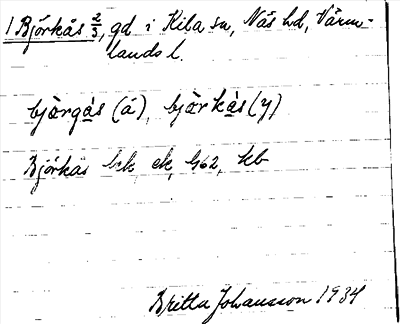 1 Björkås 2/3, gd i Kila sn, Näs hd, Värm-
lands l.
bjö̀rgås (ä), bjö̀rkås (y)
Björkås bek, ek, G62, kb
Britta Johansson 1934